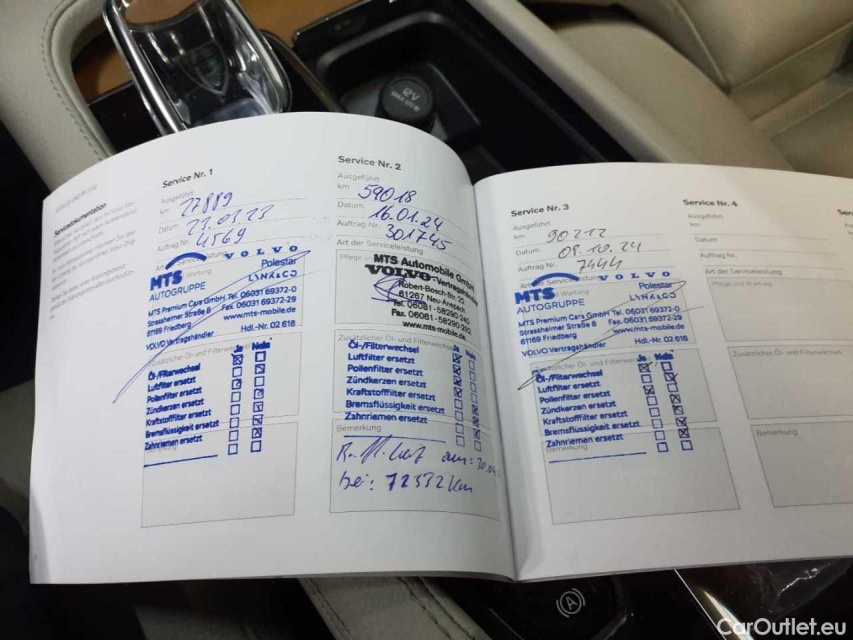 12V
Servicedokumentation
Service Nr. 1
Ausgeführt
km 27889
Datum 21.03.23
Auftrag Nr. 4569
VOLVO
Polestar
LYNK&CO
MTS
AUTOGRUPPE
MTS Premium Cars GmbH Tel. 06031 69372-0
Strassheimer Straße 8 Fax. 06031 69372-29
61169 Friedberg www.mts-mobile.de
VOLVO Vertragshändler Hdl.-Nr. 02 618
Zusätzlicher Öl- und Filterwechsel
Ja Nein
Öl-/Filterwechsel
Luftfilter ersetzt
Pollenfilter ersetzt
Zündkerzen ersetzt
Kraftstofffilter ersetzt
Bremsflüssigkeit ersetzt
Zahnriemen ersetzt
Service Nr. 2
Ausgeführt
km 59018
Datum 16.01.24
Auftrag Nr. 301745
Art der Serviceleistung
MTS Automobile GmbH
VOLVO-Vertragshändler
Robert-Bosch-Str. 22
61267 Neu-Anspach
Tel. 06081 - 58290-240
Fax. 06081 - 58290-292
www.mts-mobile.de
Zusätzlicher Öl- und Filterwechsel
Ja Nein
Öl-/Filterwechsel
Luftfilter ersetzt
Pollenfilter ersetzt
Zündkerzen ersetzt
Kraftstofffilter ersetzt
Bremsflüssigkeit ersetzt
Zahnriemen ersetzt
Bemerkung
am: 30.04.
bei: 72532 km
Service Nr. 3
Ausgeführt
km 90212
Datum 08.10.24
Auftrag Nr. 7444
VOLVO
Polestar
LYNK&CO
MTS
AUTOGRUPPE
MTS Premium Cars GmbH Tel. 06031 69372-0
Strassheimer Straße 8 Fax. 06031 69372-29
61169 Friedberg www.mts-mobile.de
VOLVO Vertragshändler Hdl.-Nr. 02 618
Zusätzlicher Öl- und Filterwechsel
Ja Nein
Öl-/Filterwechsel
Luftfilter ersetzt
Pollenfilter ersetzt
Zündkerzen ersetzt
Kraftstofffilter ersetzt
Bremsflüssigkeit ersetzt
Zahnriemen ersetzt
Bemerkung
Service Nr. 4
Ausgeführt
km
Datum
Auftrag Nr.
Art der Serviceleistung
Pflege und Wartung
Zusätzlicher Öl- und Filterwechsel
Bemerkung
CarOutlet.eu